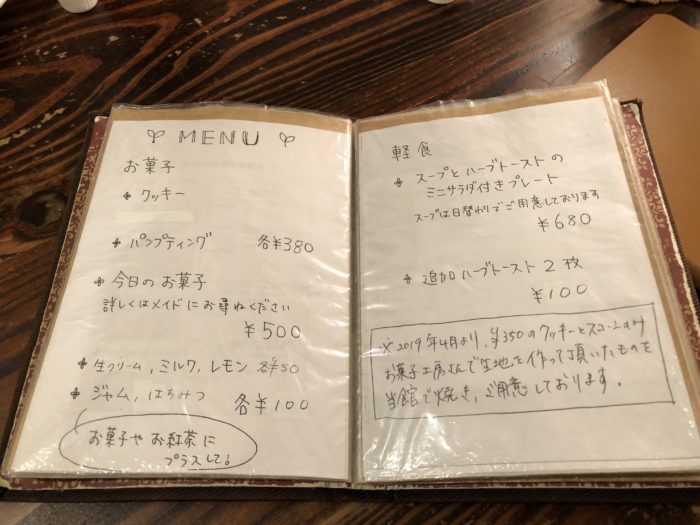 MENU
お菓子
クッキー
パンプディング 各¥380
今日のお菓子
詳しくはメイドにお尋ねください
¥500
生クリーム、ミルク、レモン 各¥50
ジャム、はちみつ 各¥100
お菓子やお紅茶に
プラスして!
軽食
スープとハーブトーストの
ミニサラダ付きプレート
スープは日替わりでご用意しております
¥680
追加ハーブトースト 2枚
¥100
※2019年4月より、¥350のクッキーとスコーンのみ
お菓子工房さんで生地を作って頂いたものを
当館で焼き、ご用意しております。